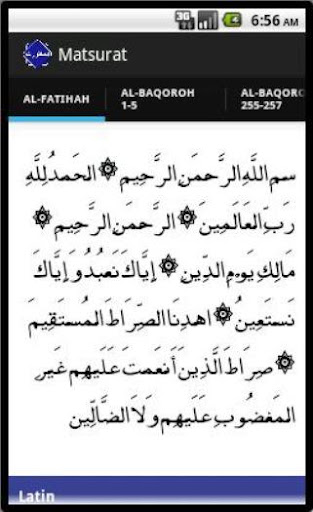 3G 6:56 AM
Matsurat
AL-FATIHAH
AL-BAQOROH
1-5
AL-BAQORO
255-257
سمِ اللَّهِ الرَّحمَنِ الرَّحِيمِ ۞ الحَمدُ لِلَّهِ
رَبِّ العَالَمِينَ ۞ الرَّحمَنِ الرَّحِيمِ ۞
مَالِكِ يَومِ الدِّينِ ۞ إِيَّاكَ نَعبُدُ وَإِيَّاكَ
نَستَعِينُ ۞ اهدِنَا الصِّرَاطَ المُستَقِيمَ
۞ صِرَاطَ الَّذِينَ أَنعَمتَ عَلَيهِم غَيرِ
المَغضُوبِ عَلَيهِم وَلَا الضَّالِّينَ
Latin